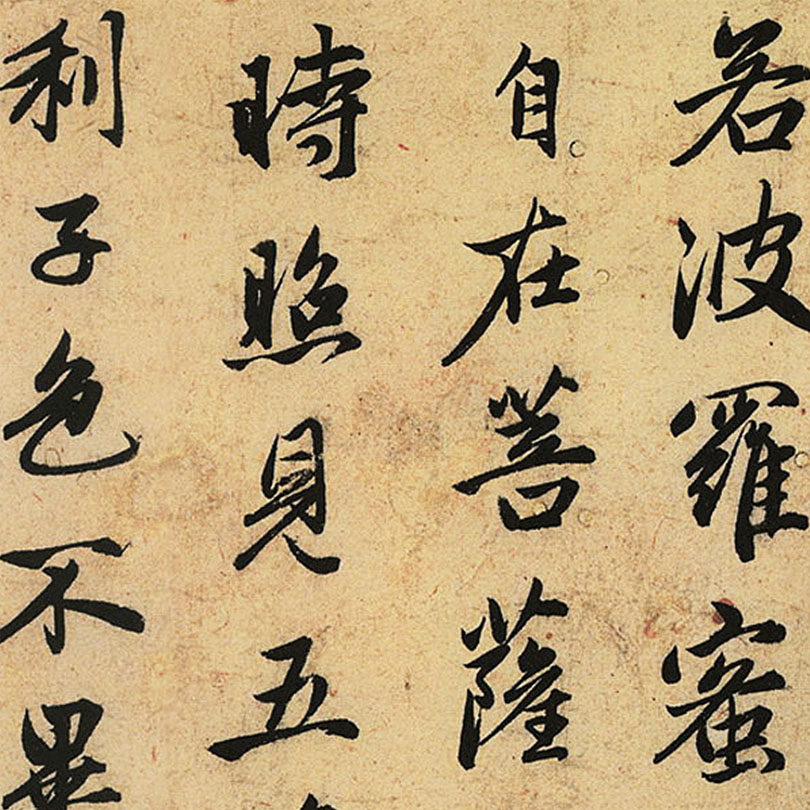 若波羅蜜
自在菩薩
時照見五
利子色不異